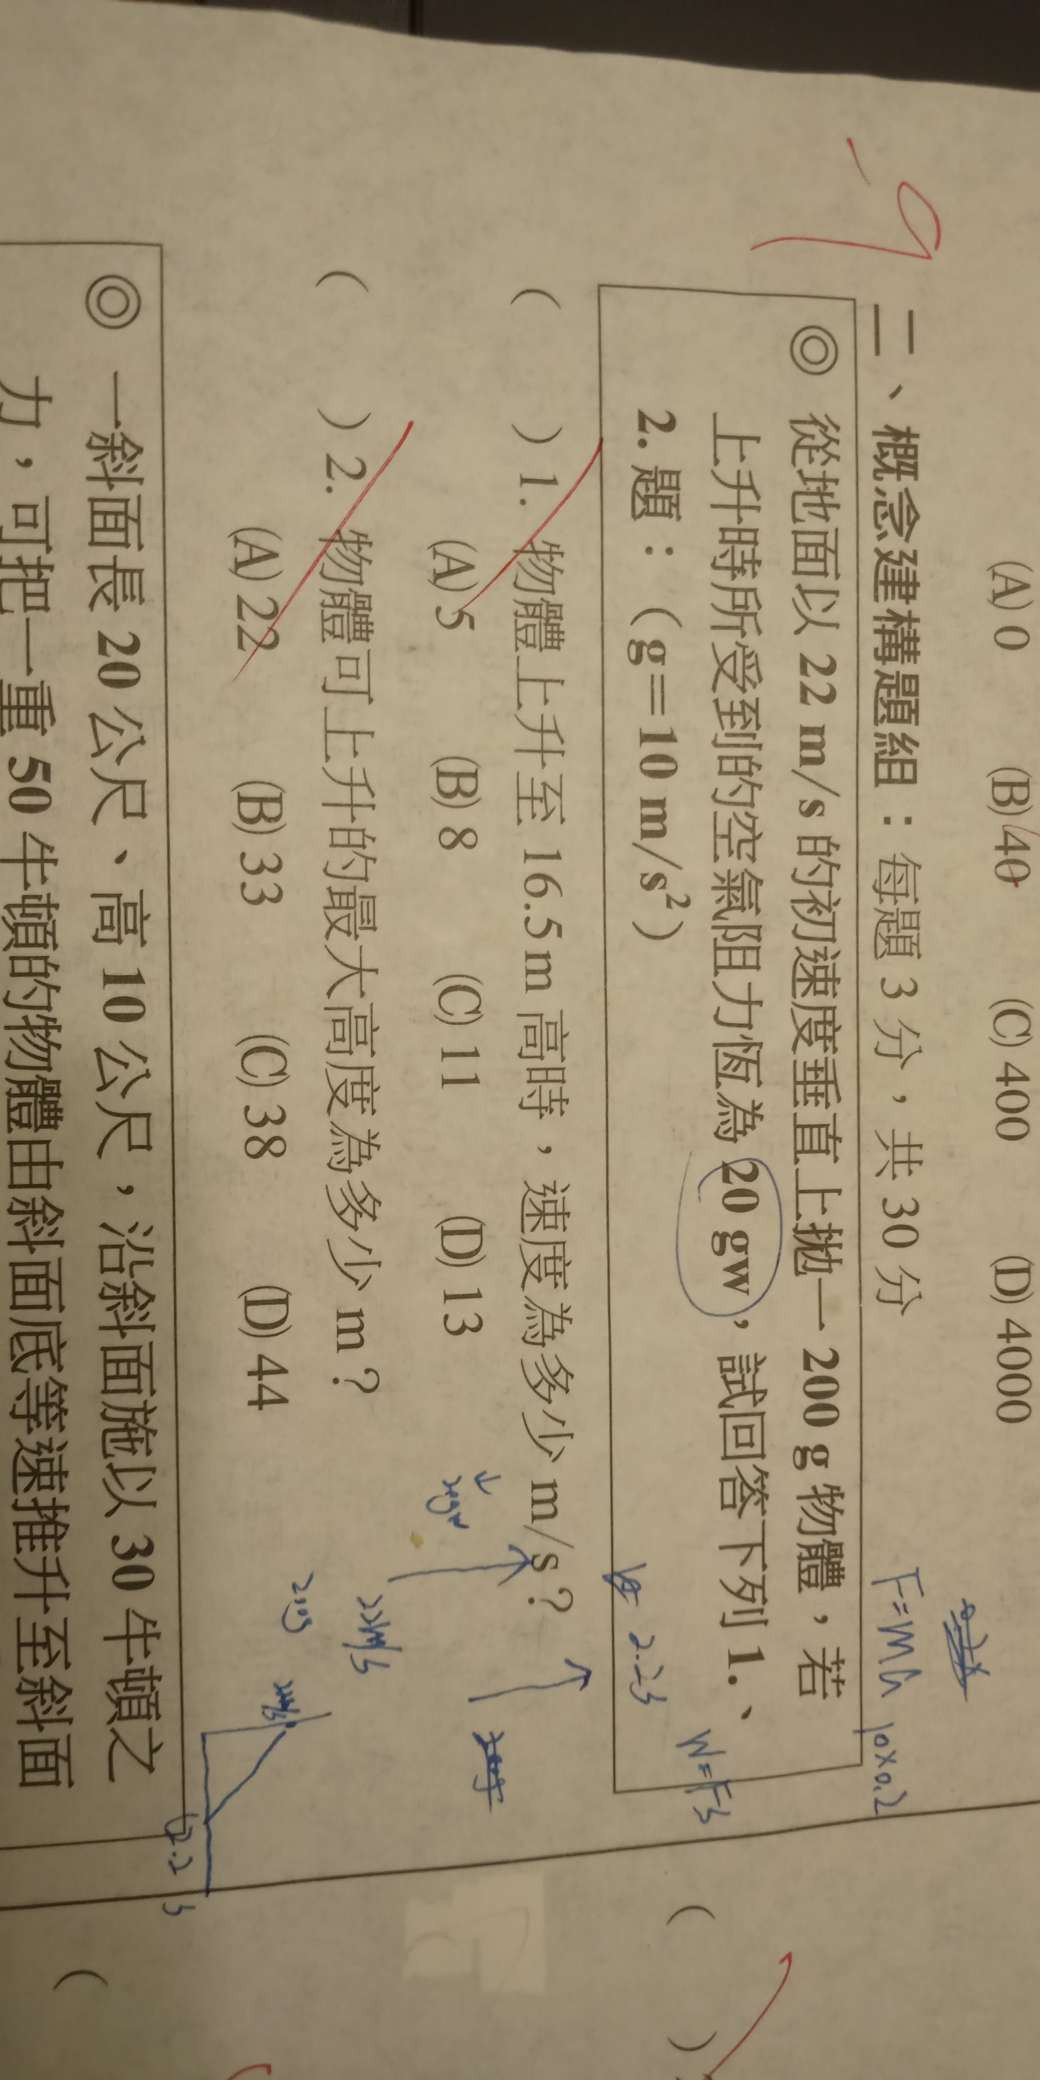 (A) 0 (B) 40 (C) 400 (D) 4000
-9
二、概念建構題組：每題 3 分，共 30 分
F=ma 10×0.2
◎ 從地面以 22 m/s 的初速度垂直上拋一 200 g 物體，若
上升時所受到的空氣阻力恆為 20 gw，試回答下列 1.、
2. 題：（g＝10 m/s²）
W=FS
2.2s
( ) 1. 物體上升至 16.5 m 高時，速度為多少 m/s？
(A) 5 (B) 8 (C) 11 (D) 13
20gw
( ) 2. 物體可上升的最大高度為多少 m？
22m/s
(A) 22 (B) 33 (C) 38 (D) 44
2.2 s
◎ 一斜面長 20 公尺、高 10 公尺，沿斜面施以 30 牛頓之
力，可把一重 50 牛頓的物體由斜面底等速推升至斜面
( )
( )